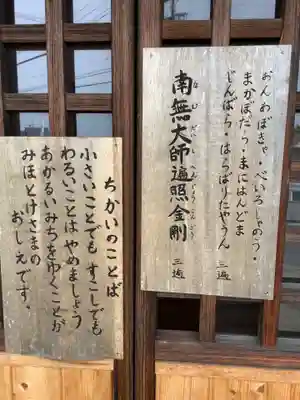 おんあぼきゃ・べいろしゃのう・
まかぼだら・まにはんどま
じんばら・はらばりたやうん 三遍
南無大師遍照金剛 三遍
なむだいしへんじょうこんごう
ちかいのことば
小さいことでも すこしでも
わるいことは やめましょう
あかるいみちを ゆくことが
みほとけさまの
おしえです。